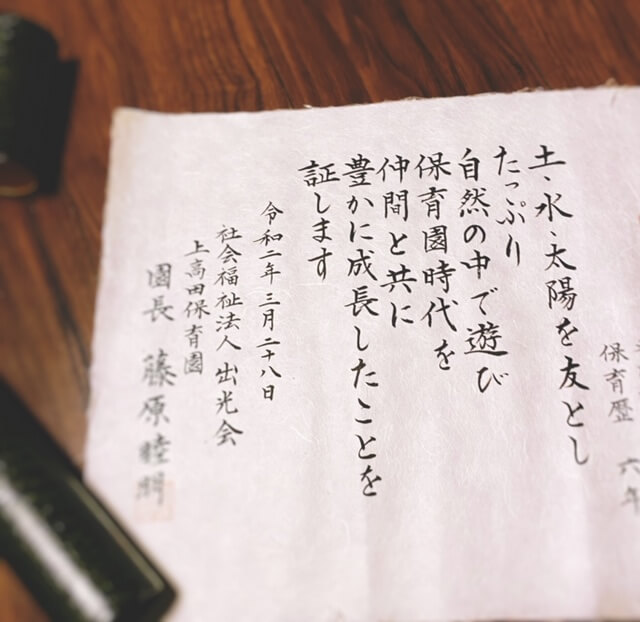 保育歴 六年
土、水、太陽を友とし
たっぷり
自然の中で遊び
保育園時代を
仲間と共に
豊かに成長したことを
証します
令和二年三月二十八日
社会福祉法人 出光会
上高田保育園
園長 藤原睦明